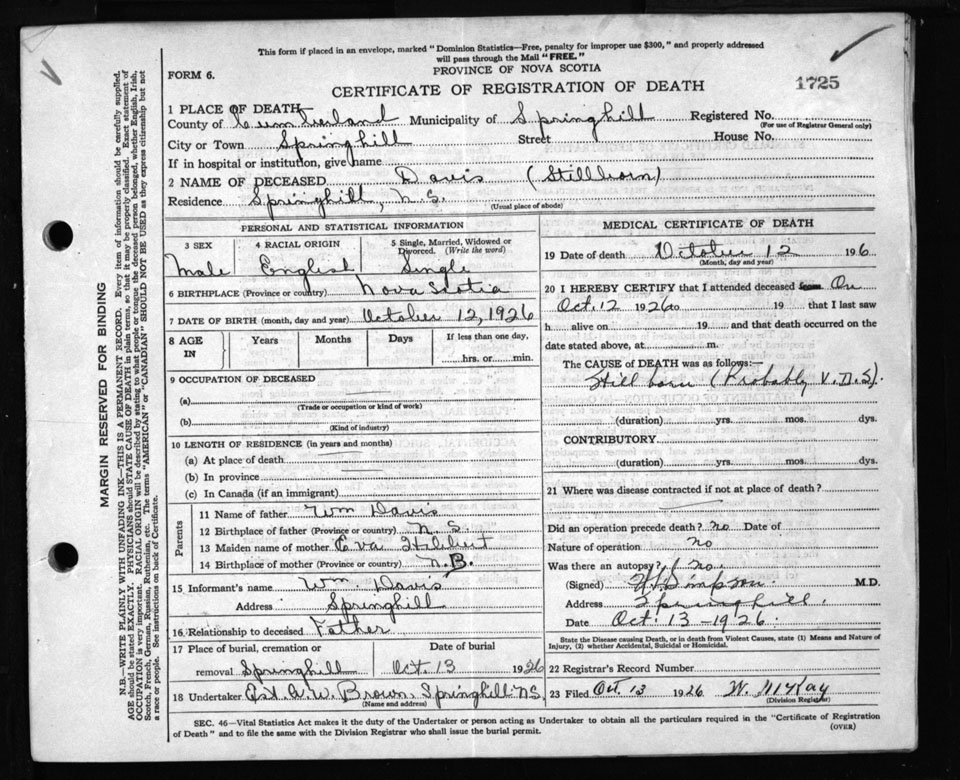 This form if placed in an envelope, marked "Dominion Statistics—Free, penalty for improper use $300," and properly addressed
will pass through the Mail "FREE."
PROVINCE OF NOVA SCOTIA
FORM 6.
1725
CERTIFICATE OF REGISTRATION OF DEATH
1 PLACE OF DEATH
County of Cumberland Municipality of Springhill Registered No.
(For use of Registrar General only)
City or Town Springhill Street House No.
If in hospital or institution, give name
2 NAME OF DECEASED Davis (Stillborn)
Residence Springhill, N.S.
(Usual place of abode)
PERSONAL AND STATISTICAL INFORMATION
3 SEX 4 RACIAL ORIGIN 5 Single, Married, Widowed or Divorced. (Write the word)
Male English Single
6 BIRTHPLACE (Province or country) Nova Scotia
7 DATE OF BIRTH (month, day and year) October 12, 1926
8 AGE IN Years Months Days If less than one day,
hrs. or min.
9 OCCUPATION OF DECEASED
(a)
(Trade or occupation or kind of work)
(b)
(Kind of industry)
10 LENGTH OF RESIDENCE (in years and months)
(a) At place of death
(b) In province
(c) In Canada (if an immigrant)
Parents
11 Name of father Wm Davis
12 Birthplace of father (Province or country) N.S.
13 Maiden name of mother Eva
14 Birthplace of mother (Province or country) N.B.
15 Informant's name Wm. Davis
Address Springhill
16 Relationship to deceased Father
17 Place of burial, cremation or Date of burial
removal Springhill Oct. 13 1926
18 Undertaker A.W. Brown, Springhill N.S.
(Name and address)
MEDICAL CERTIFICATE OF DEATH
19 Date of death October 12 1926
(Month, day and year)
20 I HEREBY CERTIFY that I attended deceased from On
Oct. 12 1926 to 19 that I last saw
h alive on 19 and that death occurred on the
date stated above, at m.
The CAUSE of DEATH was as follows:—
Still born (Probably V.D.S).
(duration) yrs. mos. dys.
CONTRIBUTORY
(duration) yrs. mos. dys.
21 Where was disease contracted if not at place of death?
Did an operation precede death? no Date of
Nature of operation no
Was there an autopsy? no
(Signed) Simpson M.D.
Address Springhill.
Date Oct. 13 - 1926.
State the Disease causing Death, or in death from Violent Causes, state (1) Means and Nature of
Injury, (2) whether Accidental, Suicidal or Homicidal.
22 Registrar's Record Number
23 Filed Oct. 13 1926 W. McKay
(Division Registrar)
SEC. 46—Vital Statistics Act makes it the duty of the Undertaker or person acting as Undertaker to obtain all the particulars required in the "Certificate of Registration
of Death" and to file the same with the Division Registrar who shall issue the burial permit.
(OVER)
MARGIN RESERVED FOR BINDING
N.B.—WRITE PLAINLY WITH UNFADING INK—THIS IS A PERMANENT RECORD. Every item of information should be carefully supplied.
AGE should be stated EXACTLY. PHYSICIANS should STATE CAUSE OF DEATH in plain terms, so that it may be properly classified. Exact statement of
OCCUPATION is very important. RACIAL ORIGIN will be described by stating to what people or tongue the deceased person belonged, whether English, Irish,
Scotch, French, German, Russian, Ruthenian, etc. The terms "AMERICAN" or "CANADIAN" SHOULD NOT BE USED as they express citizenship but not
a race or people. See instructions on back of Certificate.